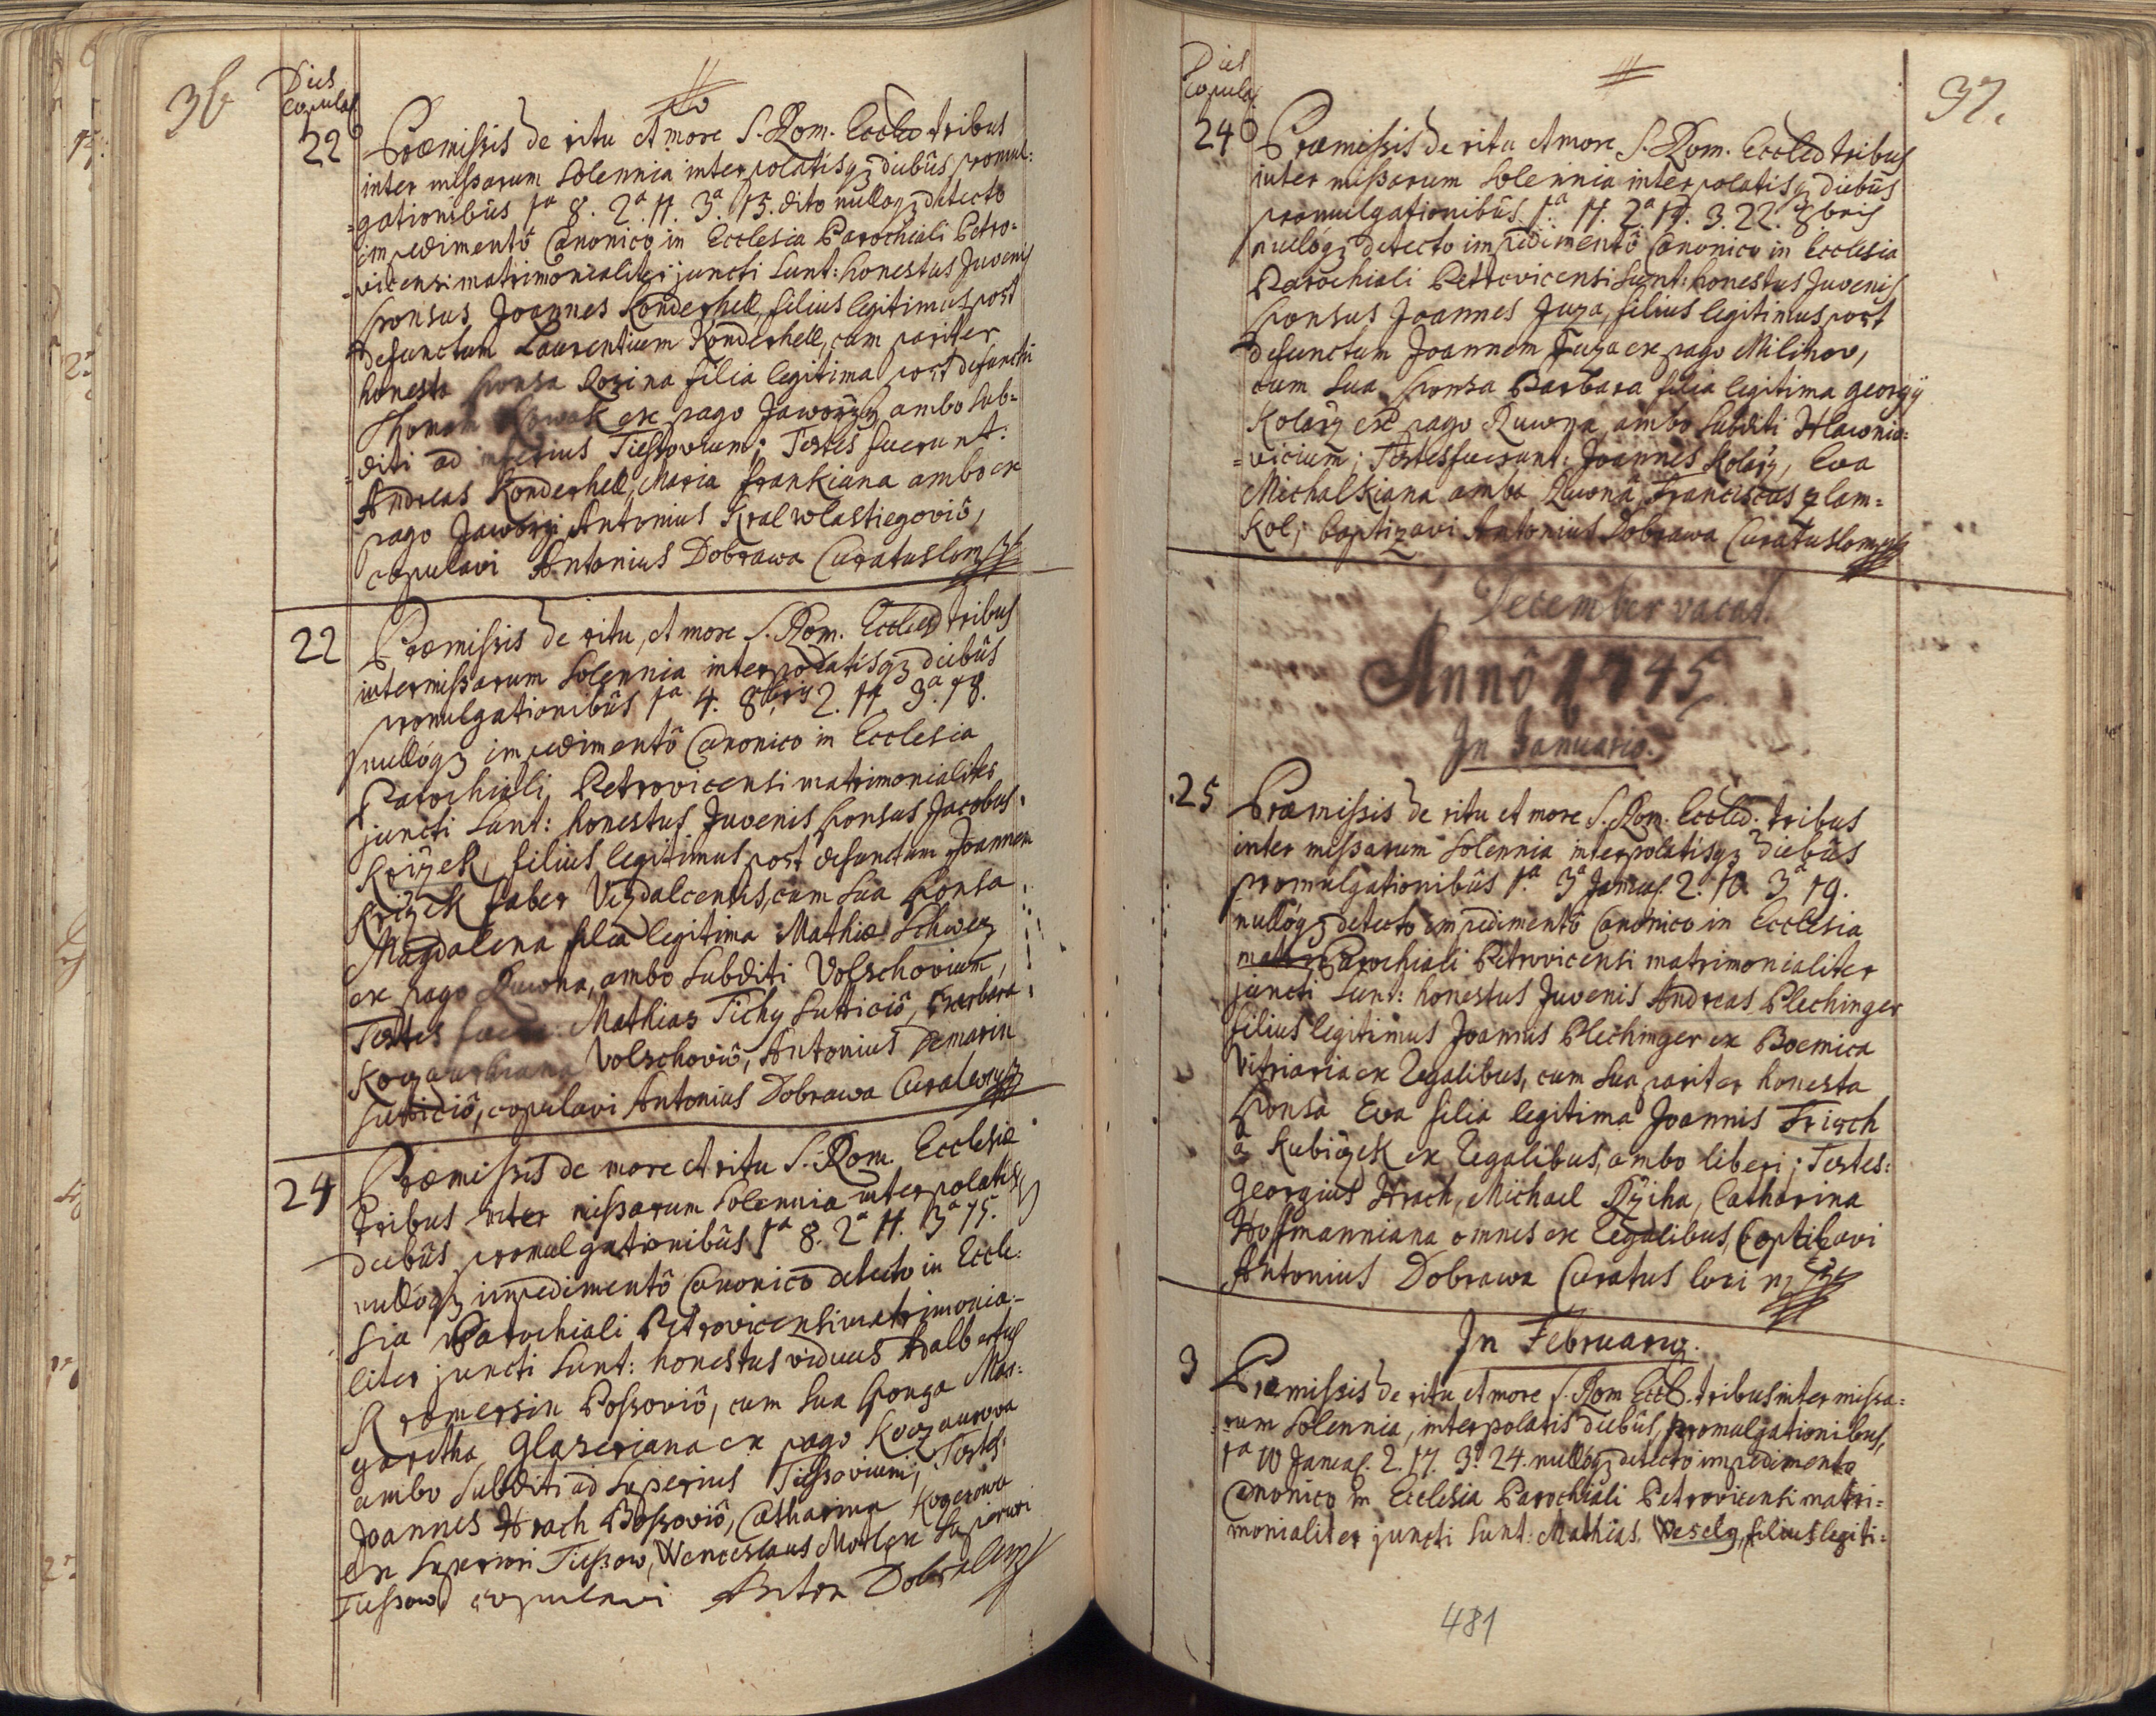 36
Dies
Copulaõ
22
Præmissis de ritu et more S. Rom. Eccleæ tribus
inter missarum Solennia interpolatisqz diebûs promul:
=gationibûs 1ª 8. 2ª 11. 3ª 15. dito nulloqz detecto
impedimentô Canonico in Ecclesia Parochiali Petro=
=vicensi matrimonialiter juncti Sunt: honestus Juvenis
Sponsus Joannes Konderhell, filius legitimus post
defunctum Laurentium Konderhell, cum pariter
honesta Sponsa Rozina filia legitima post defuncti
Thomam Nowak ex pago Jaworzy, ambo Sub=
=diti ad inferius Tiessovium; Testes fuerunt:
Andreas Konderhell, Maria Frankiana ambo ex
pago Jaworzi, Antonius Kral Wlastiegoviô,
copulavi Antonius Dobrawa Curatus loci mpz
22
Præmissis de ritu, et more S. Rom. Eccleæ tribus
inter missarum Solennia interpolatisqz diebûs
promulgationibûs 1ª 4. 8bris 2. 11. 3ª 18.
nullóqz impedimentô Canonico in Ecclesia
Parochiali Petrovicensi matrimonialiter
juncti Sunt: honestus Juvenis Sponsus Jacobus
Krizek, filius legitimus post defunctum Joannem
Krizek faber Vizdalcensis, cum Sua Sponsa
Magdalena filia legitima Mathiæ Schwez
ex pago Ruwna, ambo Subditi Volschovium,
Testes Mathias Tichy Sutticiô, Barbara
Volschoviô, Antonius Demarin
Sutticiô, copulavi Antonius Dobrawa Curat mpz
24
Præmissis de more et ritu S. Rom. Ecclesiæ
tribus inter missarum Solennia interpolatis
diebûs promulgationibûs 1ª 8. 2ª 11. 3ª 15.
nullóqz impedimentô Canonico detecto in Eccle:
sia Parochiali Petrovicensi matrimonia:
liter juncti Sunt: honestus viduus Adalbertus
Kromersin Possoviô, cum Sua Sponsa Mar:
garetha Glaseriana ex pago Koczaurova
ambo Subditi ad Superius Tiessovium; Testes:
Joannes Hrach Bossoviô, Catharina Kogerowa
ex Superiori Tiessow, Wenceslaus Motl ex Superiori
Tiessow copulavi Anton Dobr
37.
Dies
Copulaõ
24
Præmissis de ritu et more S. Rom. Eccleæ tribus
inter missarum Solennia interpolatisqz diebûs
promulgationibûs 1.ª 11. 2ª 17. 3. 22. 8bris
nullóqz detecto impedimentô Canonico in Ecclesia
Parochiali Petrovicensi Sunt: honestus Juvenis
Sponsus Joannes Juza, filius legitimus post
defunctum Joannem Juza ex pago Milinov,
cum Sua Sponsa Barbara filia legitima georgÿ
Kolarz ex pago Ruwna, ambo Subditi Hlawnio=
=vicium; Testes fuerunt: Joannes Kolarz, Eva
Michalkiana ambo Ruwna, Franciscus zlam=
Kol; baptizavi Antonius Dobrawa Curatus loci mpz
December vacat.
Annô 1745
In Januario.
25
Præmissis de ritu et more S. Rom. Eccleæ. tribus
inter missarum Solennia interpolatisqz diebûs
promulgationibûs 1.ª 3ª Januaÿ. 2. 10. 3ª 19.
nullóqz detecto impedimentô Canonico in Ecclesia
Parochiali Petrovicensi matrimonialiter
juncti Sunt: honestus Juvenis Andreas Plechinger
filius legitimus Joannis Plechinger ex Boemica
Vitriaria ex Regalibus, cum Sua pariter honesta
Sponsa Eva filia legitima Joannis Frisch
à Kubiczek ex Regalibus, ambo liberi; Testes:
Georgius Hrach, Michael Rÿiha, Catharina
Hoffmanniana omnes ex Regalibus,
Antonius Dobrawa Curatus loci mpz
In Februario.
3
Præmissis de ritu et more S. Rom Eccl. tribus inter missa=
=rum Solennia, interpolatis diebûs, promulgationibus,
1ª 10 Januaÿ. 2. 17. 3ª 24. nullóqz detecto impedimento
Canonico in Ecclesia Parochiali Petrovicensi matri=
monialiter juncti Sunt: Mathias Wesely, filius legiti=
481